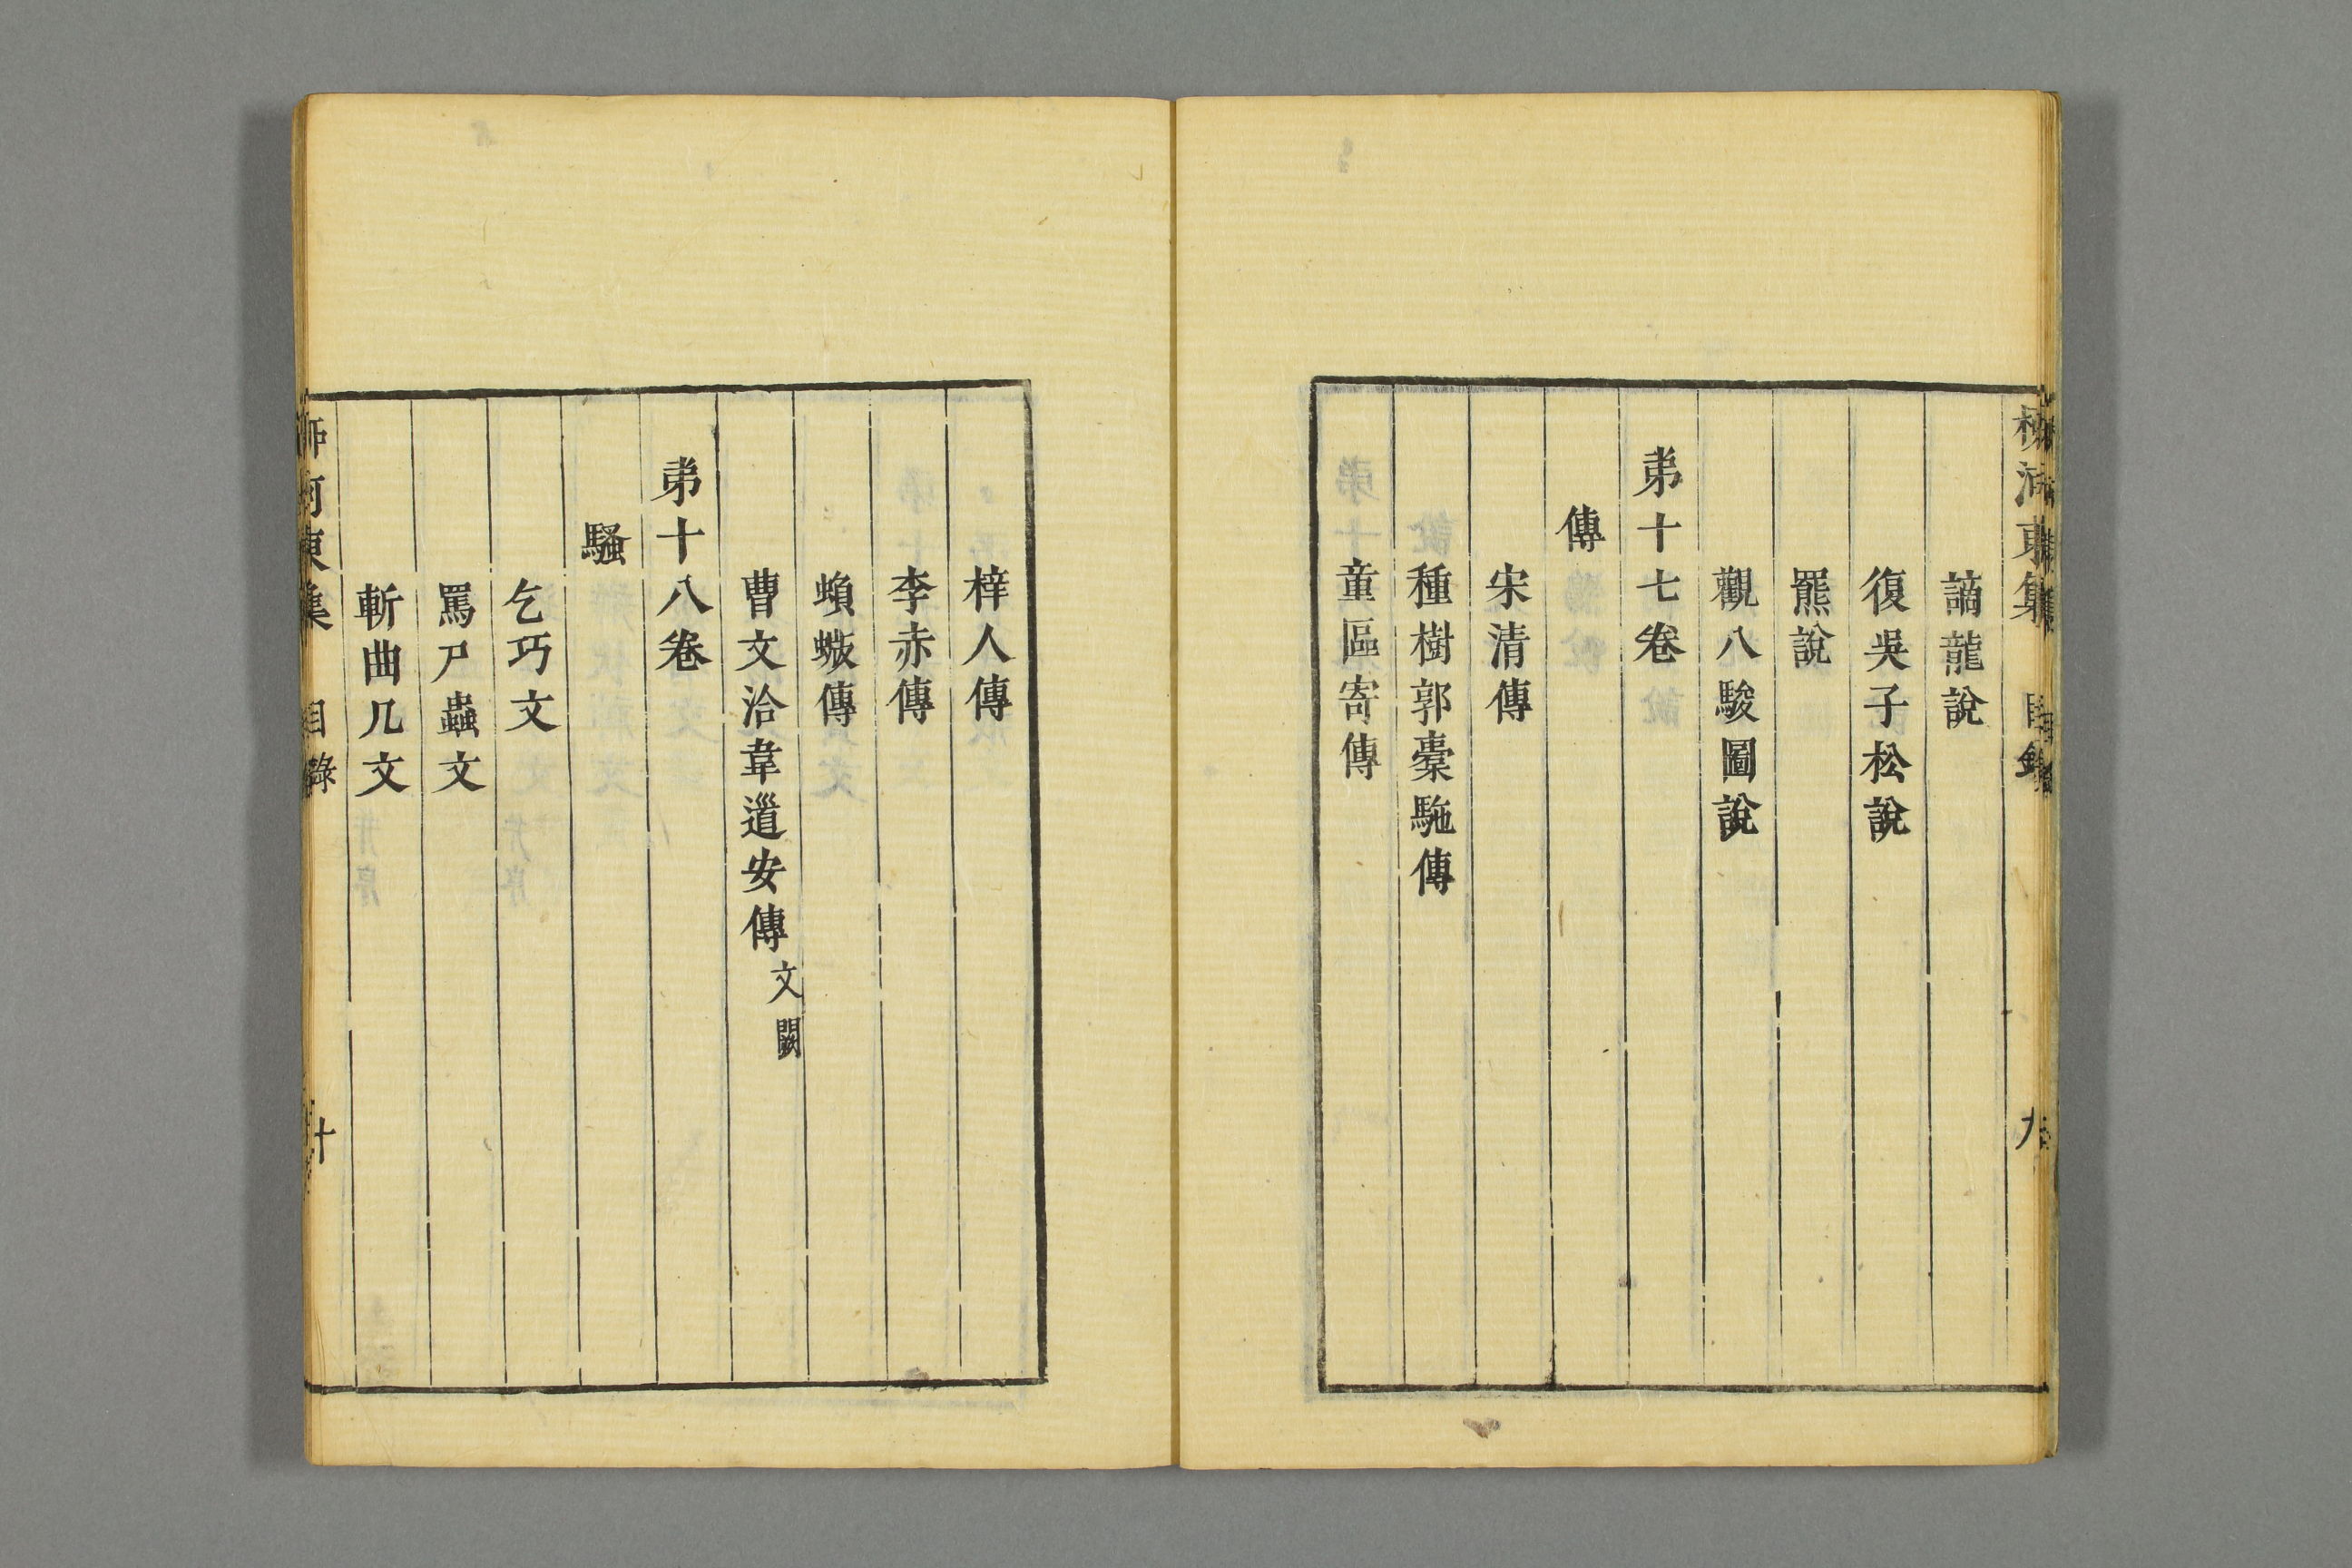 柳河東集 目錄 九
謫龍說
復吳子松說
羆說
觀八駿圖說
弟十七卷
傳
宋清傳
種樹郭橐駞傳
童區寄傳
梓人傳
李赤傳
蝜蝂傳
曹文洽韋道安傳 文闕
弟十八卷
騷
乞巧文
罵尸蟲文
斬曲几文
柳河東集 目錄 十